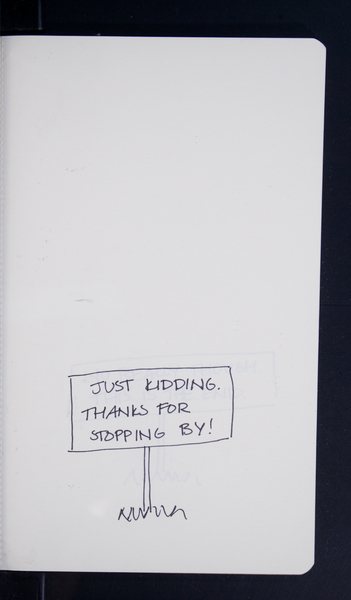 JUST KIDDING.
THANKS FOR
STOPPING BY!